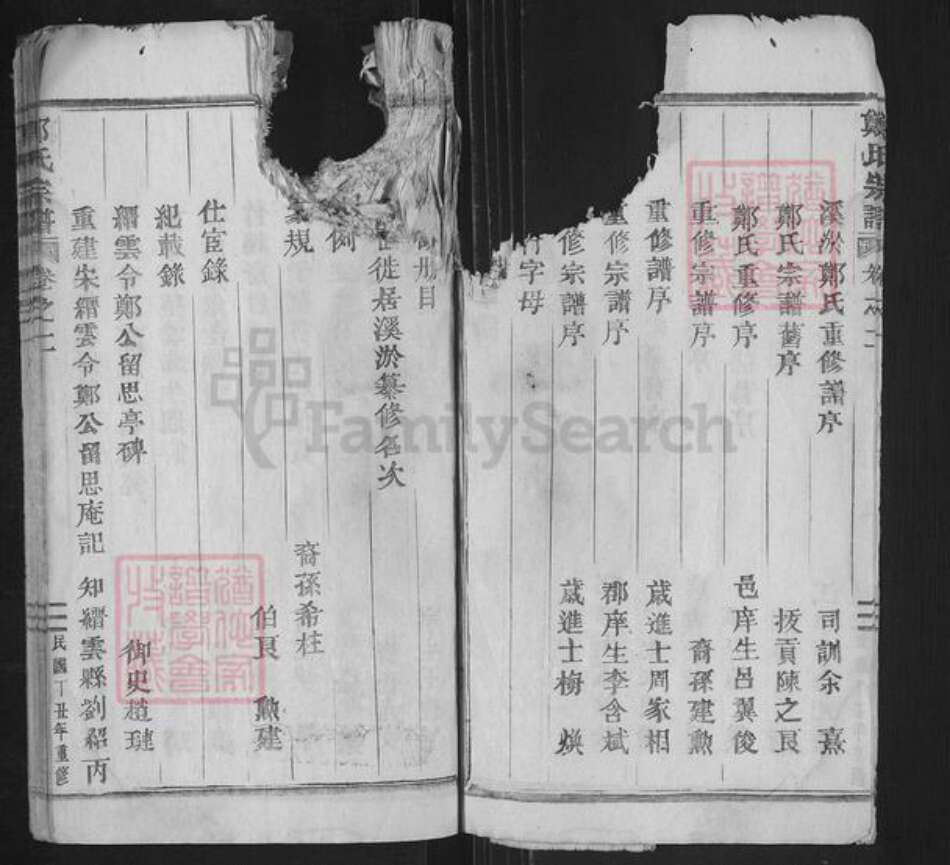 鄭氏宗譜 卷之一
溪淤鄭氏重修譜序 司訓余熹
鄭氏宗譜舊序 拔貢陳之良
鄭氏重修序 邑庠生呂翼俊
重修宗譜序 裔孫建勲
重修譜序 歲進士周家相
重修宗譜序 郡庠生李含斌
修宗譜序 歲進士樹煥
字母
册目
徙居溪淤纂修名次
例
家規 裔孫希柱
伯良 勲建
仕宦錄
紀
錄
縉雲令鄭公留思亭碑 御史趙璉
重建宋縉雲令鄭公留思庵記 知縉雲縣劉紹丙
氏宗譜 卷之一
民國丁丑年重修
FamilySearch